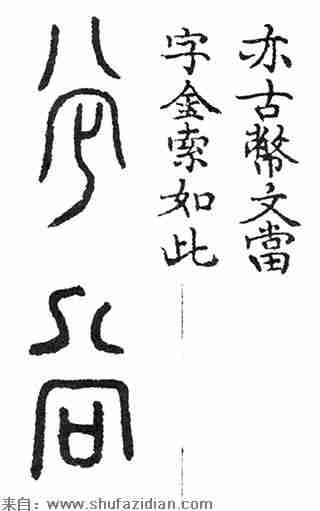 亦古幣文當
字金索如此
来自：www.shufazidian.com